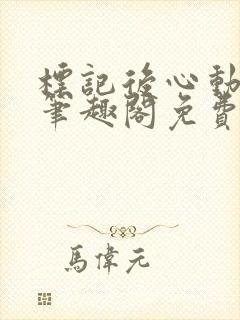 標記後心動
筆趣閣免費
馬偉元